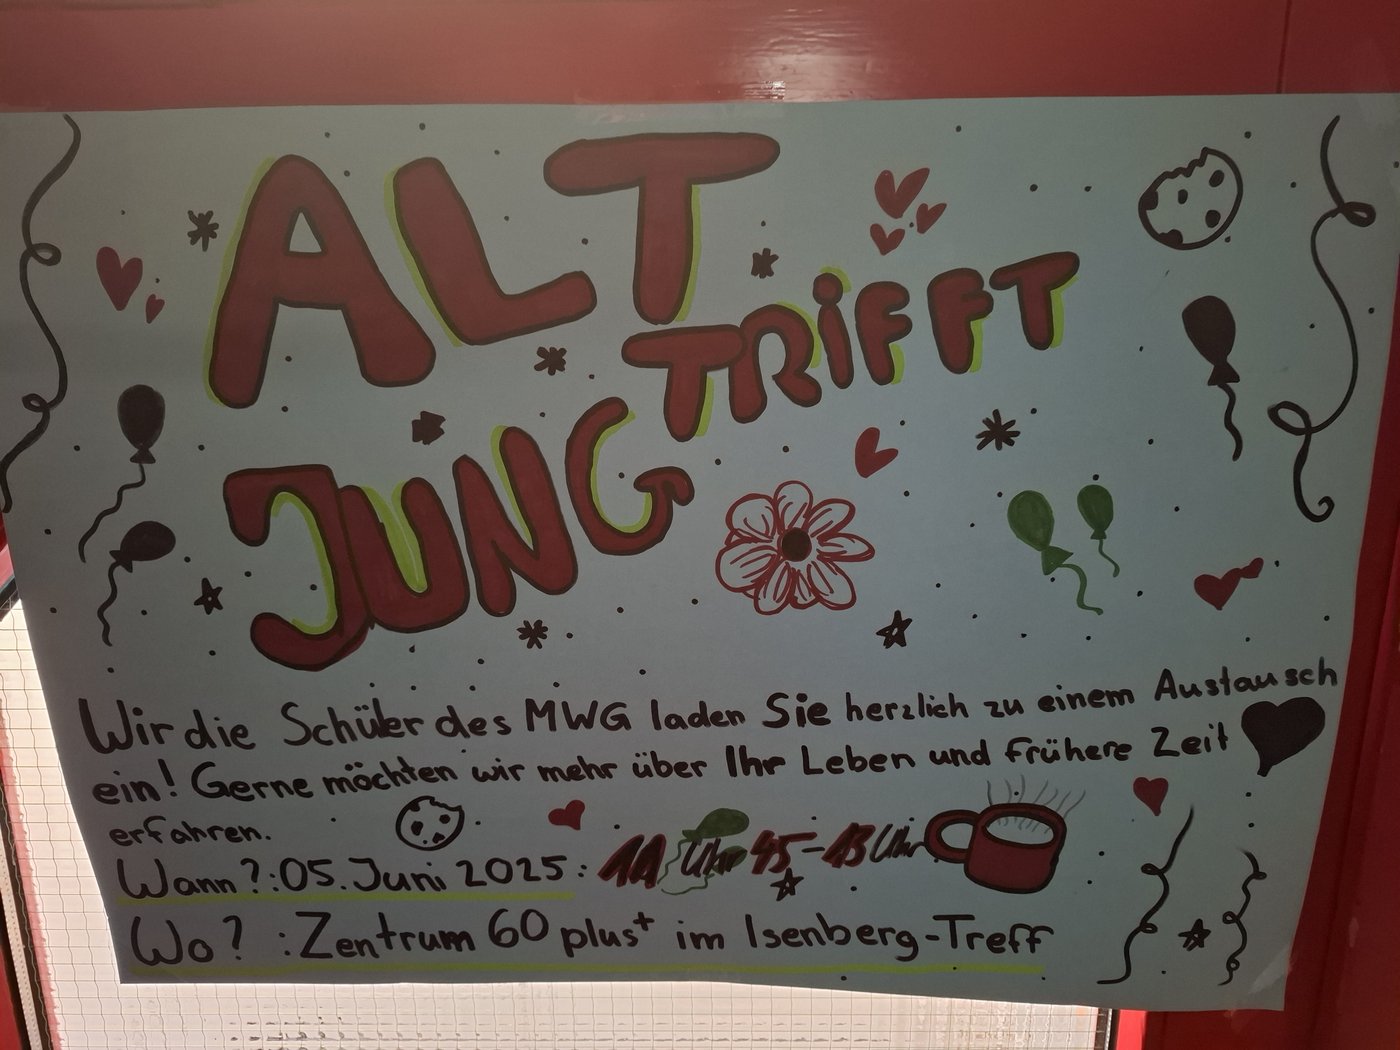 ALT
TRIFFT
JUNG
Wir die Schüler des MWG laden Sie herzlich zu einem Austausch
ein! Gerne möchten wir mehr über Ihr Leben und frühere Zeit
erfahren.
Wann?: 05. Juni 2025: 11 Uhr 45 - 13 Uhr
Wo? : Zentrum 60 plus+ im Isenberg-Treff